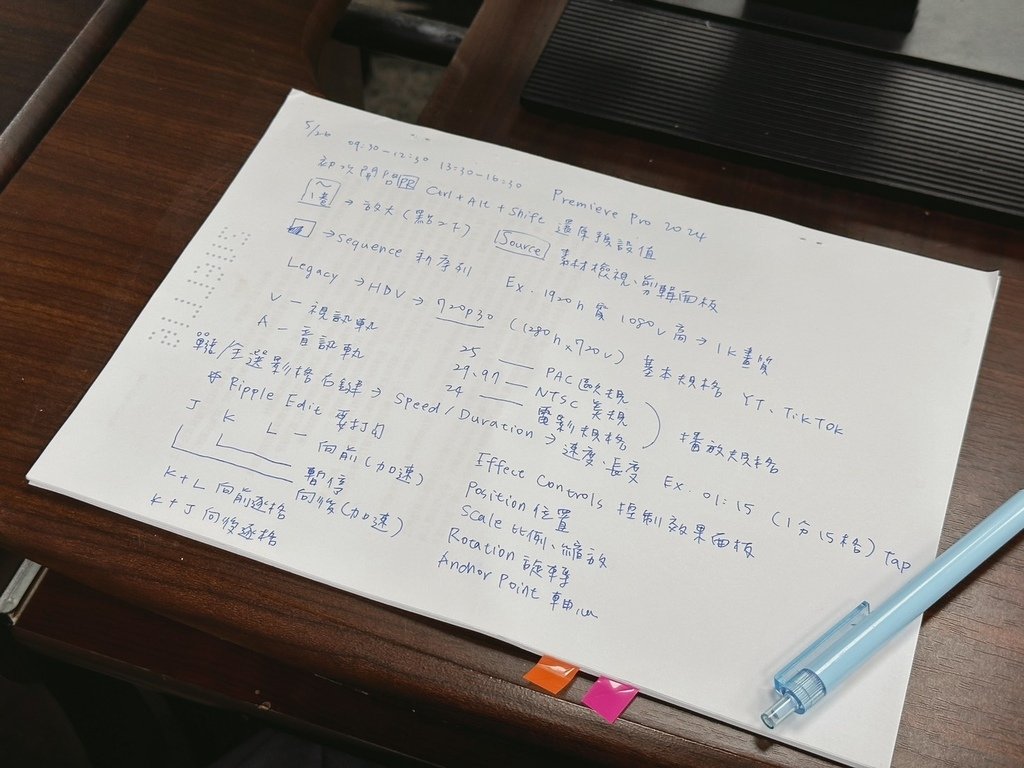 5/26 09:30-12:30 13:30-16:30 Premiere Pro 2024
初次開啟PR Ctrl + Alt + Shift 還原預設值
～ 1者 → 放大(點2下) Source 素材檢視、剪輯面板
→ Sequence 新序列 Ex. 1920h 寬 1080v 高 → 1K畫質
Legacy → HDV → 720p30 (1280h x 720v) 基本規格 YT、TikTok
V - 視訊軌
A - 音訊軌
25 —— PAC 歐規
29.97 —— NTSC 美規
24 —— 電影規格
播放規格
單張/全選影格右鍵 → Speed / Duration → 速度、長度 Ex. 01:15 (1分15格) Tap
Ripple Edit 要打勾
J K L - 向前(加速)
暫停
向後(加速)
K+L 向前逐格
K+J 向後逐格
Effect Controls 控制效果面板
Position 位置
Scale 比例、縮放
Rotation 旋轉
Anchor Point 軸心